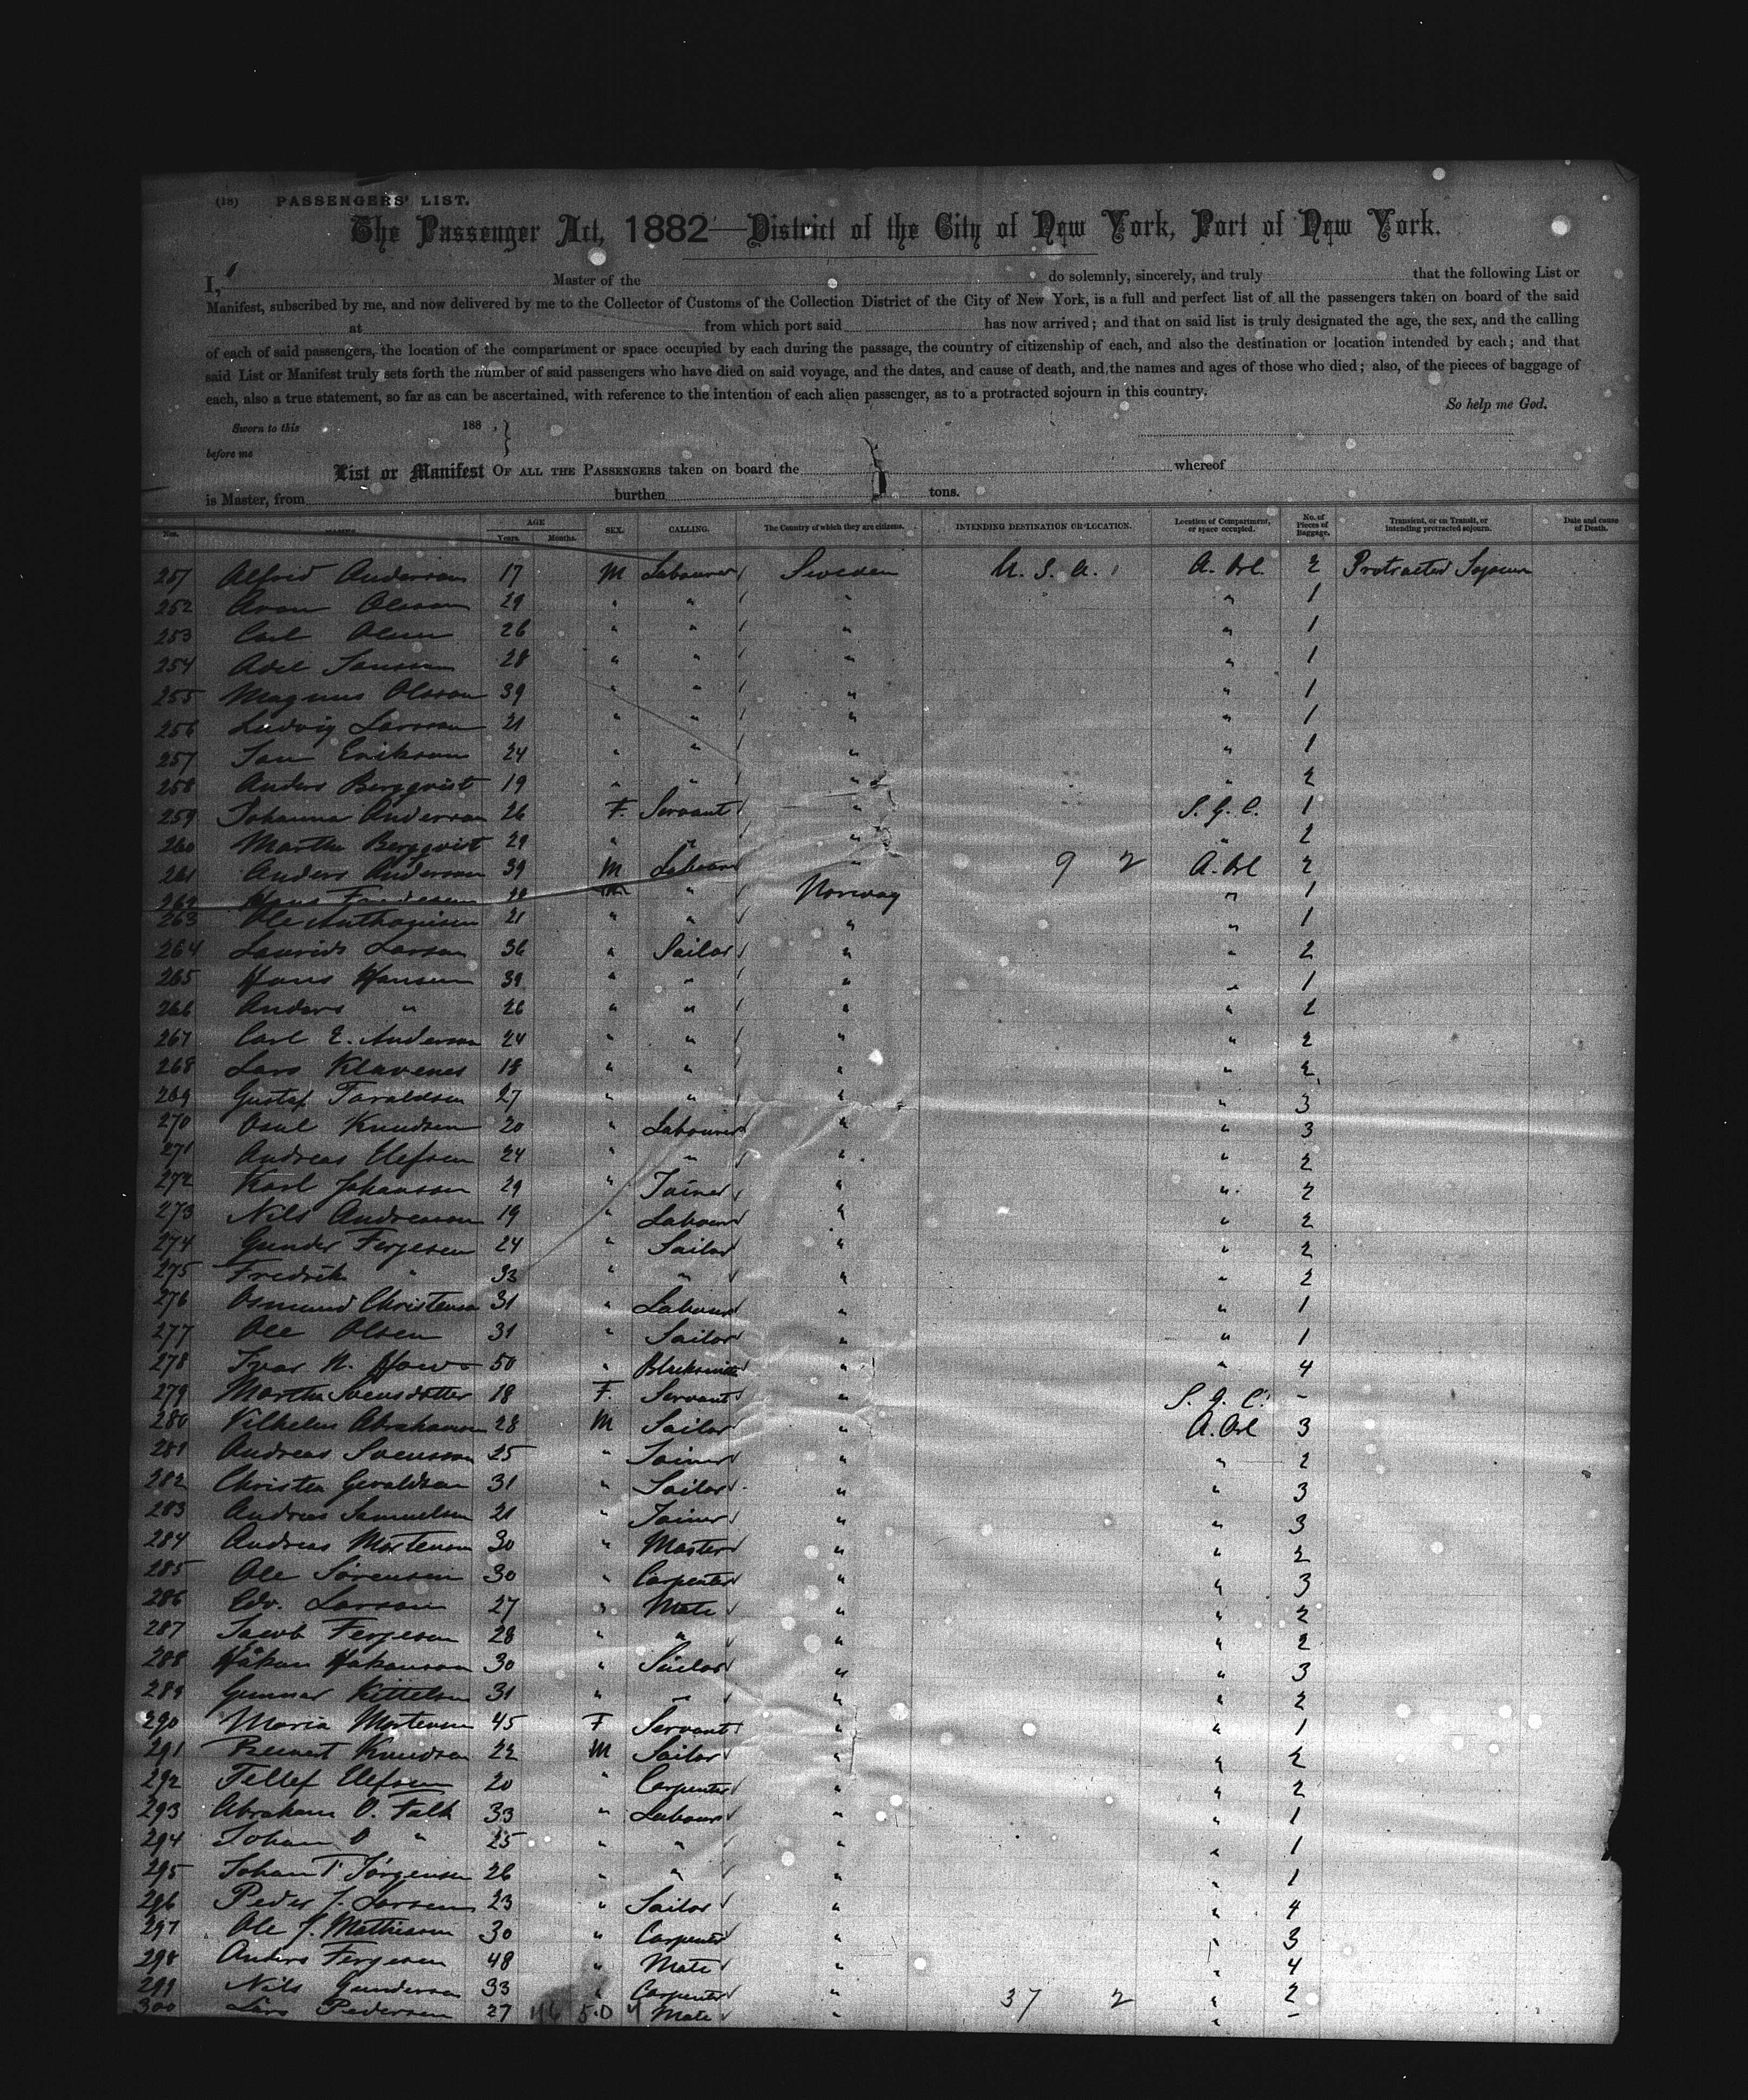 (18) PASSENGERS' LIST.
The Passenger Act, 1882—District of the City of New York, Port of New York.
I, Master of the do solemnly, sincerely, and truly that the following List or
Manifest, subscribed by me, and now delivered by me to the Collector of Customs of the Collection District of the City of New York, is a full and perfect list of all the passengers taken on board of the said
at from which port said has now arrived; and that on said list is truly designated the age, the sex, and the calling
of each of said passengers, the location of the compartment or space occupied by each during the passage, the country of citizenship of each, and also the destination or location intended by each; and that
said List or Manifest truly sets forth the number of said passengers who have died on said voyage, and the dates, and cause of death, and the names and ages of those who died; also, of the pieces of baggage of
each, also a true statement, so far as can be ascertained, with reference to the intention of each alien passenger, as to a protracted sojourn in this country.
So help me God.
Sworn to this 188 , }
before me
List or Manifest OF ALL THE PASSENGERS taken on board the whereof
is Master, from burthen tons.
Nos. NAMES AGE Years. Months. SEX. CALLING. The Country of which they are citizens. INTENDING DESTINATION OR LOCATION. Location of Compartment, or space occupied. No. of Pieces of Baggage. Transient, or on Transit, or intending protracted sojourn. Date and cause of Death.
251 Alfrid Anderson 17 M Labourer Sweden U. S. A. 2 Protracted Sojourn
252 Olsson 29 " " " " 1
253 Carl Olsen 26 " " " " 1
254 Axel Jansson 28 " " " " 1
255 Magnus Olsson 39 " " " " 1
256 Ludvig Larsson 21 " " " " 1
257 Jan Erikson 24 " " " " 1
258 Anders Bergqvist 19 " " " " 2
259 Johanna Anderson 26 F. Servant " S. G. C. 1
260 Martha Bergqvist 29 " " " " 2
261 Anders Anderson 39 M Labourer " 9 2 2
262 Hans M " Norway " 1
263 Ole Anthonisen 21 " " " " 1
264 Laurids Larsen 36 " Sailor " " 2
265 Hans Hansen 39 " " " " 1
266 Anders " 26 " " " " 2
267 Carl E. Anderson 24 " " " " 2
268 Lars Klavenes 18 " " " " 2
269 Gustaf Taraldsen 27 " " " " 3
270 Knudsen 20 " Labourer " " 3
271 Andreas Elefsen 24 " " " " 2
272 Karl Johansson 29 " Joiner " " 2
273 Nils Andreasson 19 " Labourer " " 2
274 Gunder Terjesen 24 " Sailor " " 2
275 Fredrik " 33 " " " " 2
276 Osmund Christensen 31 " Labourer " " 1
277 Ole Olsen 31 " Sailor " " 1
278 Ivar N. 50 " Blacksmith " " 4
279 Martha Svensdotter 18 F. Servant " S. G. C. -
280 Vilhelm Abrahamsen 28 M Sailor " 3
281 Andreas Svensson 25 " Joiner " " 2
282 Christen Geraldsen 31 " Sailor " " 3
283 Andreas Samuelsen 21 " Joiner " " 3
284 Andreas Mortensen 30 " Master " " 2
285 Ole Sörensen 30 " Carpenter " " 3
286 Edv. Larsson 27 " Mate " " 2
287 Jacob Terjesen 28 " " " " 2
288 Håkan Håkansson 30 " Sailor " " 3
289 Gunnar Kittelsen 31 " " " " 2
290 Maria Mortensen 45 F Servant " " 1
291 Reinert Knudsen 22 M Sailor " " 2
292 Tellef Elefsen 20 " Carpenter " " 2
293 Abraham O. Falk 33 " Labourer " " 1
294 Johan O " 25 " " " " 1
295 Johan T Jörgensen 26 " " " " 1
296 Peder J. Larsen 23 " Sailor " " 4
297 Ole J. Mathiesen 30 " Carpenter " " 3
298 Anders Terjesen 48 " Mate " " 4
299 Nils Gunderson 33 " Carpenter " 37 2 " 2
300 Lars Pedersen 27 " Mate " " -